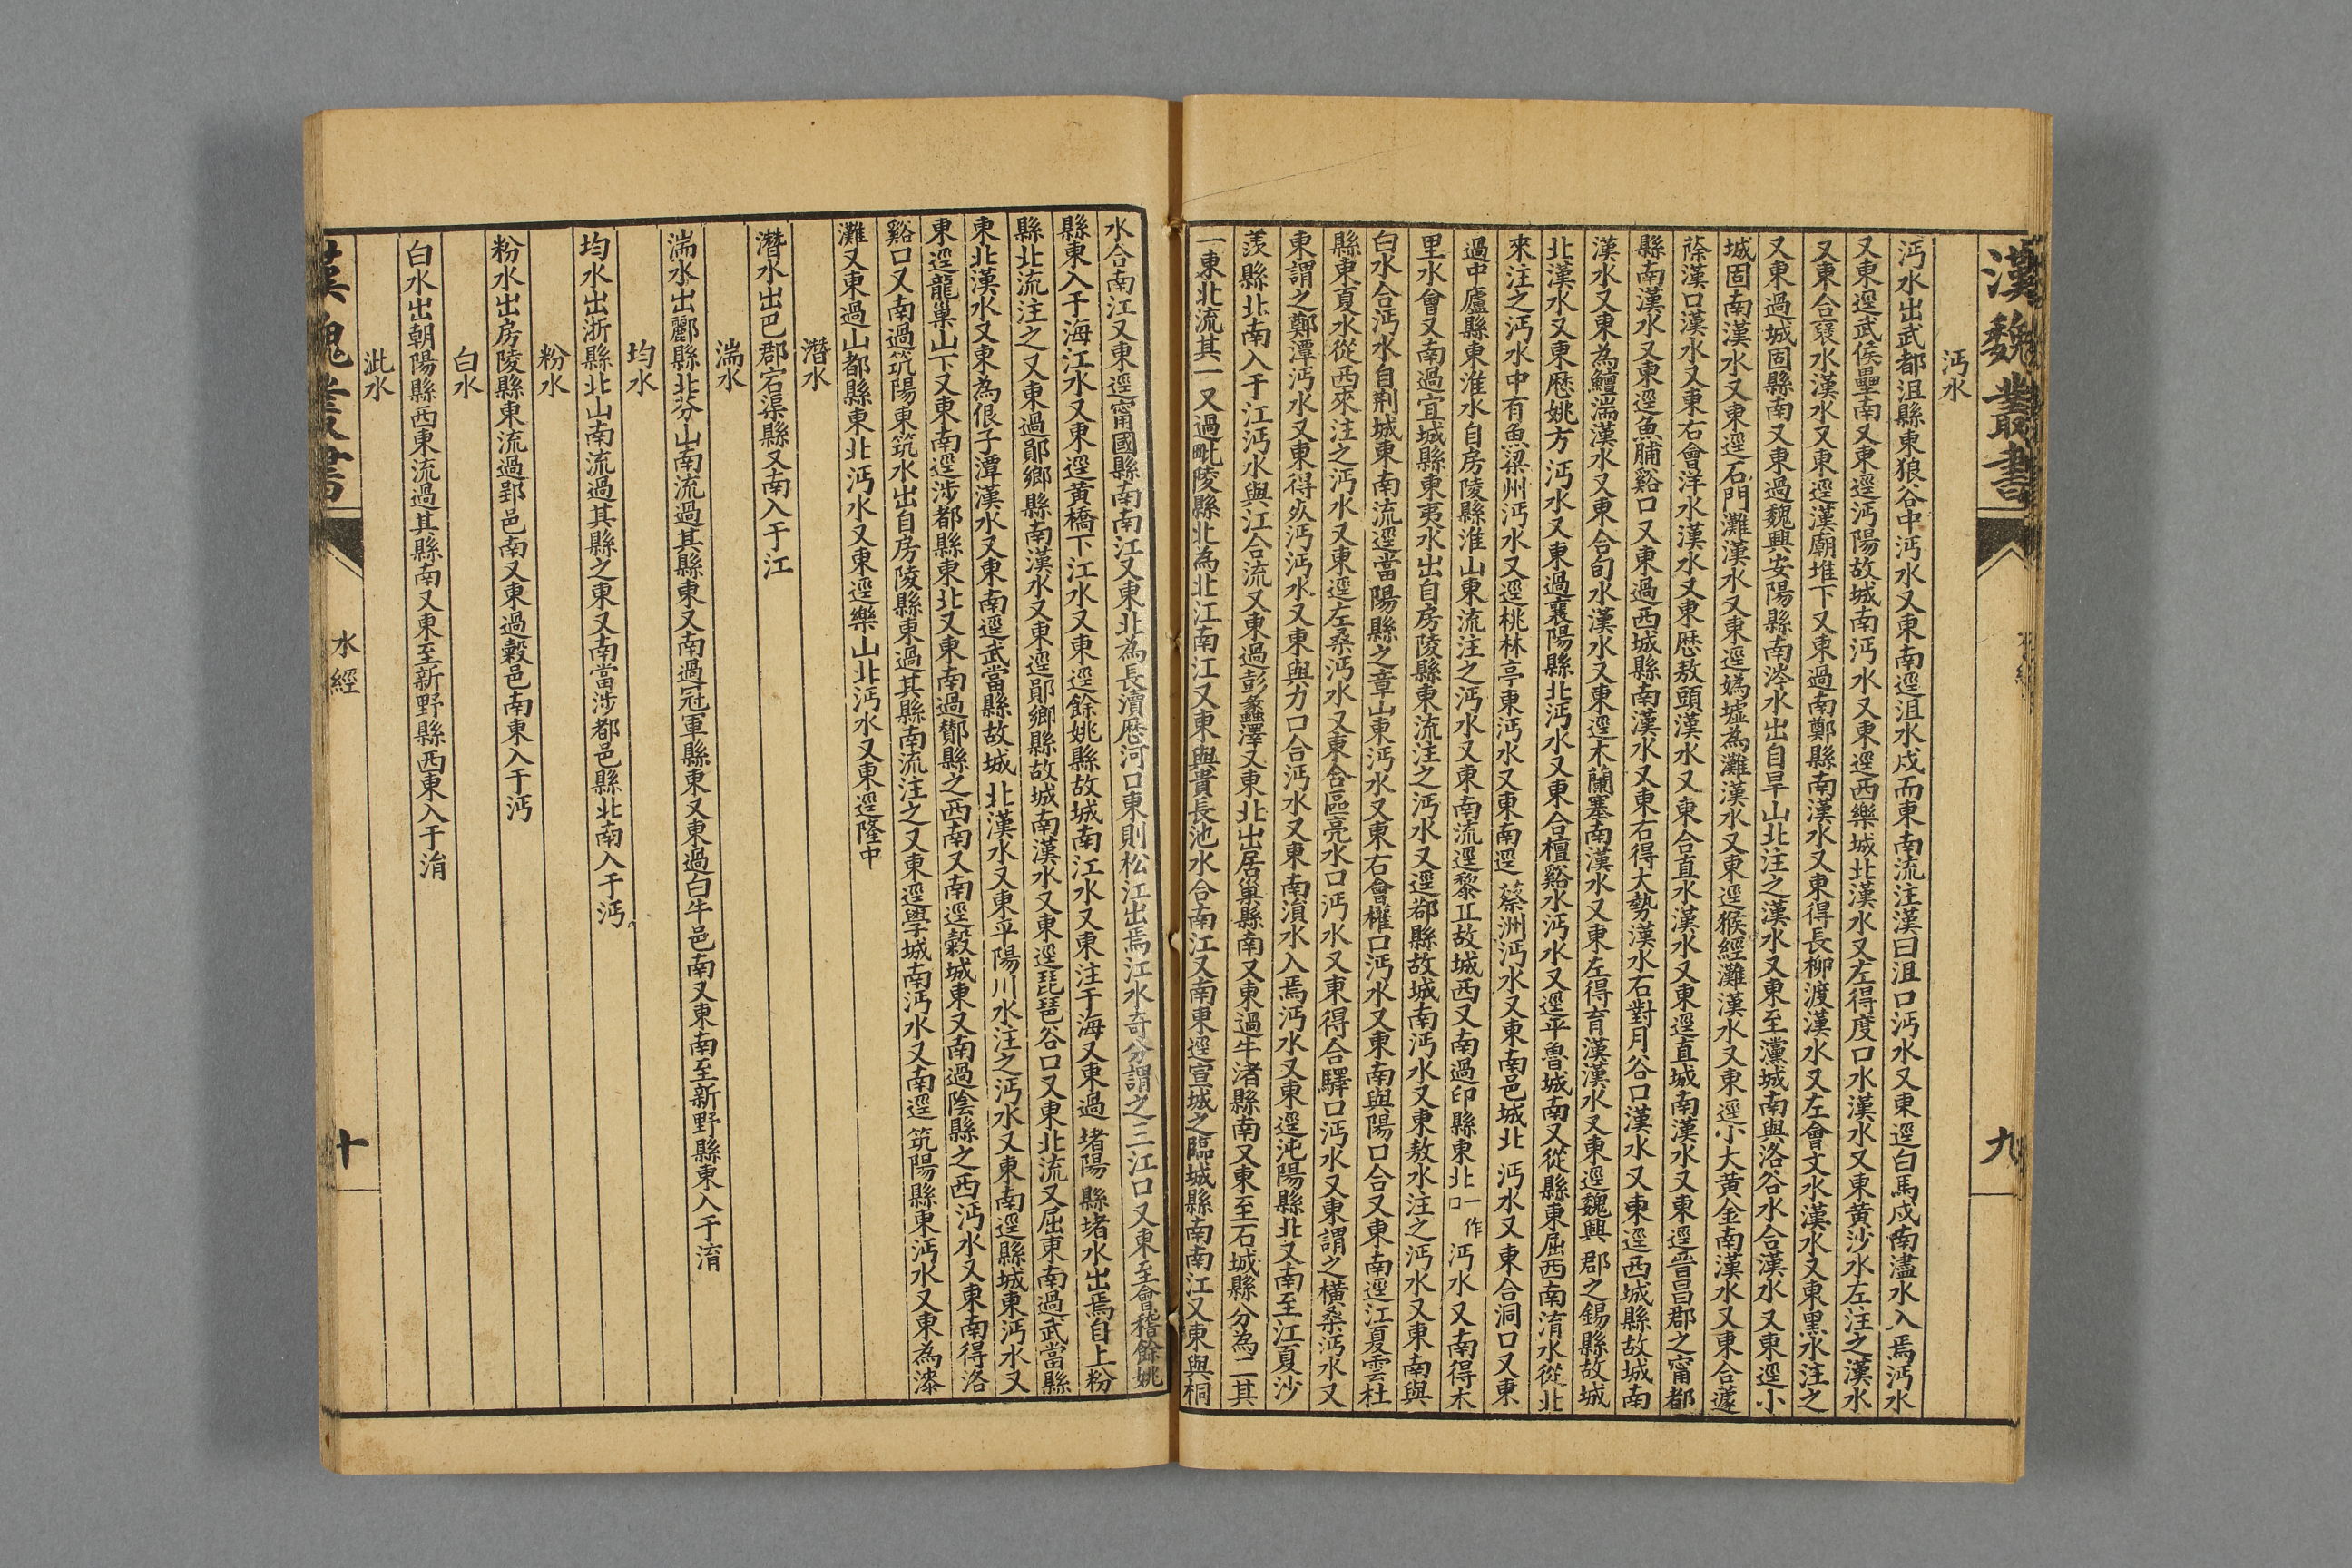 漢魏叢書
九
沔水
沔水出武都沮縣東狼谷中沔水又東南逕沮水戍而東南流注漢曰沮口沔水又東逕白馬戍南濜水入焉沔水
又東逕武侯壘南又東逕沔陽故城南沔水又東逕西樂城北漢水又左得度口水漢水又東黃沙水左注之漢水
又東合襃水漢水又東逕漢廟堆下又東過南鄭縣南漢水又東得長柳渡漢水又左會文水漢水又東黑水注之
又東過城固縣南又東過魏興安陽縣南涔水出自旱山北注之漢水又東至灙城南與洛谷水合漢水又東逕小
城固南漢水又東逕石門灘漢水又東逕媯墟為灘漢水又東逕猴經灘漢水又東逕小大黃金南漢水又東合蘧
蒢漢口漢水又東右會洋水漢水又東歷敖頭漢水又東合直水漢水又東逕直城南漢水又東逕晉昌郡之甯都
縣南漢水又東逕魚脯谿口又東過西城縣南漢水又東右得大勢漢水右對月谷口漢水又東逕西城縣故城南
漢水又東為鱣湍漢水又東合旬水漢水又東逕木蘭塞南漢水又東左得育漢漢水又東逕魏興郡之錫縣故城
北漢水又東歷姚方沔水又東過襄陽縣北沔水又東合檀谿水沔水又逕平魯城南又從縣東屈西南淯水從北
來注之沔水中有魚梁州沔水又逕桃林亭東沔水又東南逕蔡洲沔水又東南邑城北沔水又東合洞口又東
過中廬縣東淮水自房陵縣淮山東流注之沔水又東南流逕黎丘故城西又南過印縣東北一作口沔水又南得木
里水會又南過宜城縣東夷水出自房陵縣東流注之沔水又逕鄀縣故城南沔水又東敖水注之沔水又東南與
臼水合沔水自荆城東南流逕當陽縣之章山東沔水又東右會權口沔水又東南與陽口合又東南逕江夏雲杜
縣東夏水從西來注之沔水又東逕左桑沔水又東合區亮水口沔水又東得合驛口沔水又東謂之橫桑沔水又
東謂之鄭潭沔水又東得㳄沔沔水又東與力口合沔水又東南溳水入焉沔水又東逕沌陽縣北又南至江夏沙
羨縣北南入于江沔水與江合流又東過彭蠡澤又東北出居巢縣南又東過牛渚縣南又東至石城縣分為二其
一東北流其一又過毗陵縣北為北江南江又東與貴長池水合南江又南東逕宣城之臨城縣南南江又東與桐
水合南江又東逕甯國縣南南江又東北為長瀆歷河口東則松江出焉江水奇分謂之三江口又東至會稽餘姚
縣東入于海江水又東逕黃橋下江水又東逕餘姚縣故城南江水又東注于海又東過堵陽縣堵水出焉自上粉
縣北流注之又東過鄖鄉縣南漢水又東逕鄖鄉縣故城南漢水又東逕琵琶谷口又東北流又屈東南過武當縣
東北漢水又東為佷子潭漢水又東南逕武當縣故城北漢水又東平陽川水注之沔水又東南逕縣城東沔水又
東逕龍巢山下又東南逕涉都縣東北又東南過酇縣之西南又南逕穀城東又南過陰縣之西沔水又東南得洛
谿口又南過筑陽東筑水出自房陵縣東過其縣南流注之又東逕學城南沔水又南逕筑陽縣東沔水又東為漆
灘又東過山都縣東北沔水又東逕樂山北沔水又東逕隆中
潛水
潛水出巴郡宕渠縣又南入于江
湍水
湍水出酈縣北芬山南流過其縣東又南過冠軍縣東又東過白牛邑南又東南至新野縣東入于淯
均水
均水出浙縣北山南流過其縣之東又南當涉都邑縣北南入于沔
粉水
粉水出房陵縣東流過郢邑南又東過穀邑南東入于沔
白水
白水出朝陽縣西東流過其縣南又東至新野縣西東入于淯
沘水
漢魏叢書
水經
十